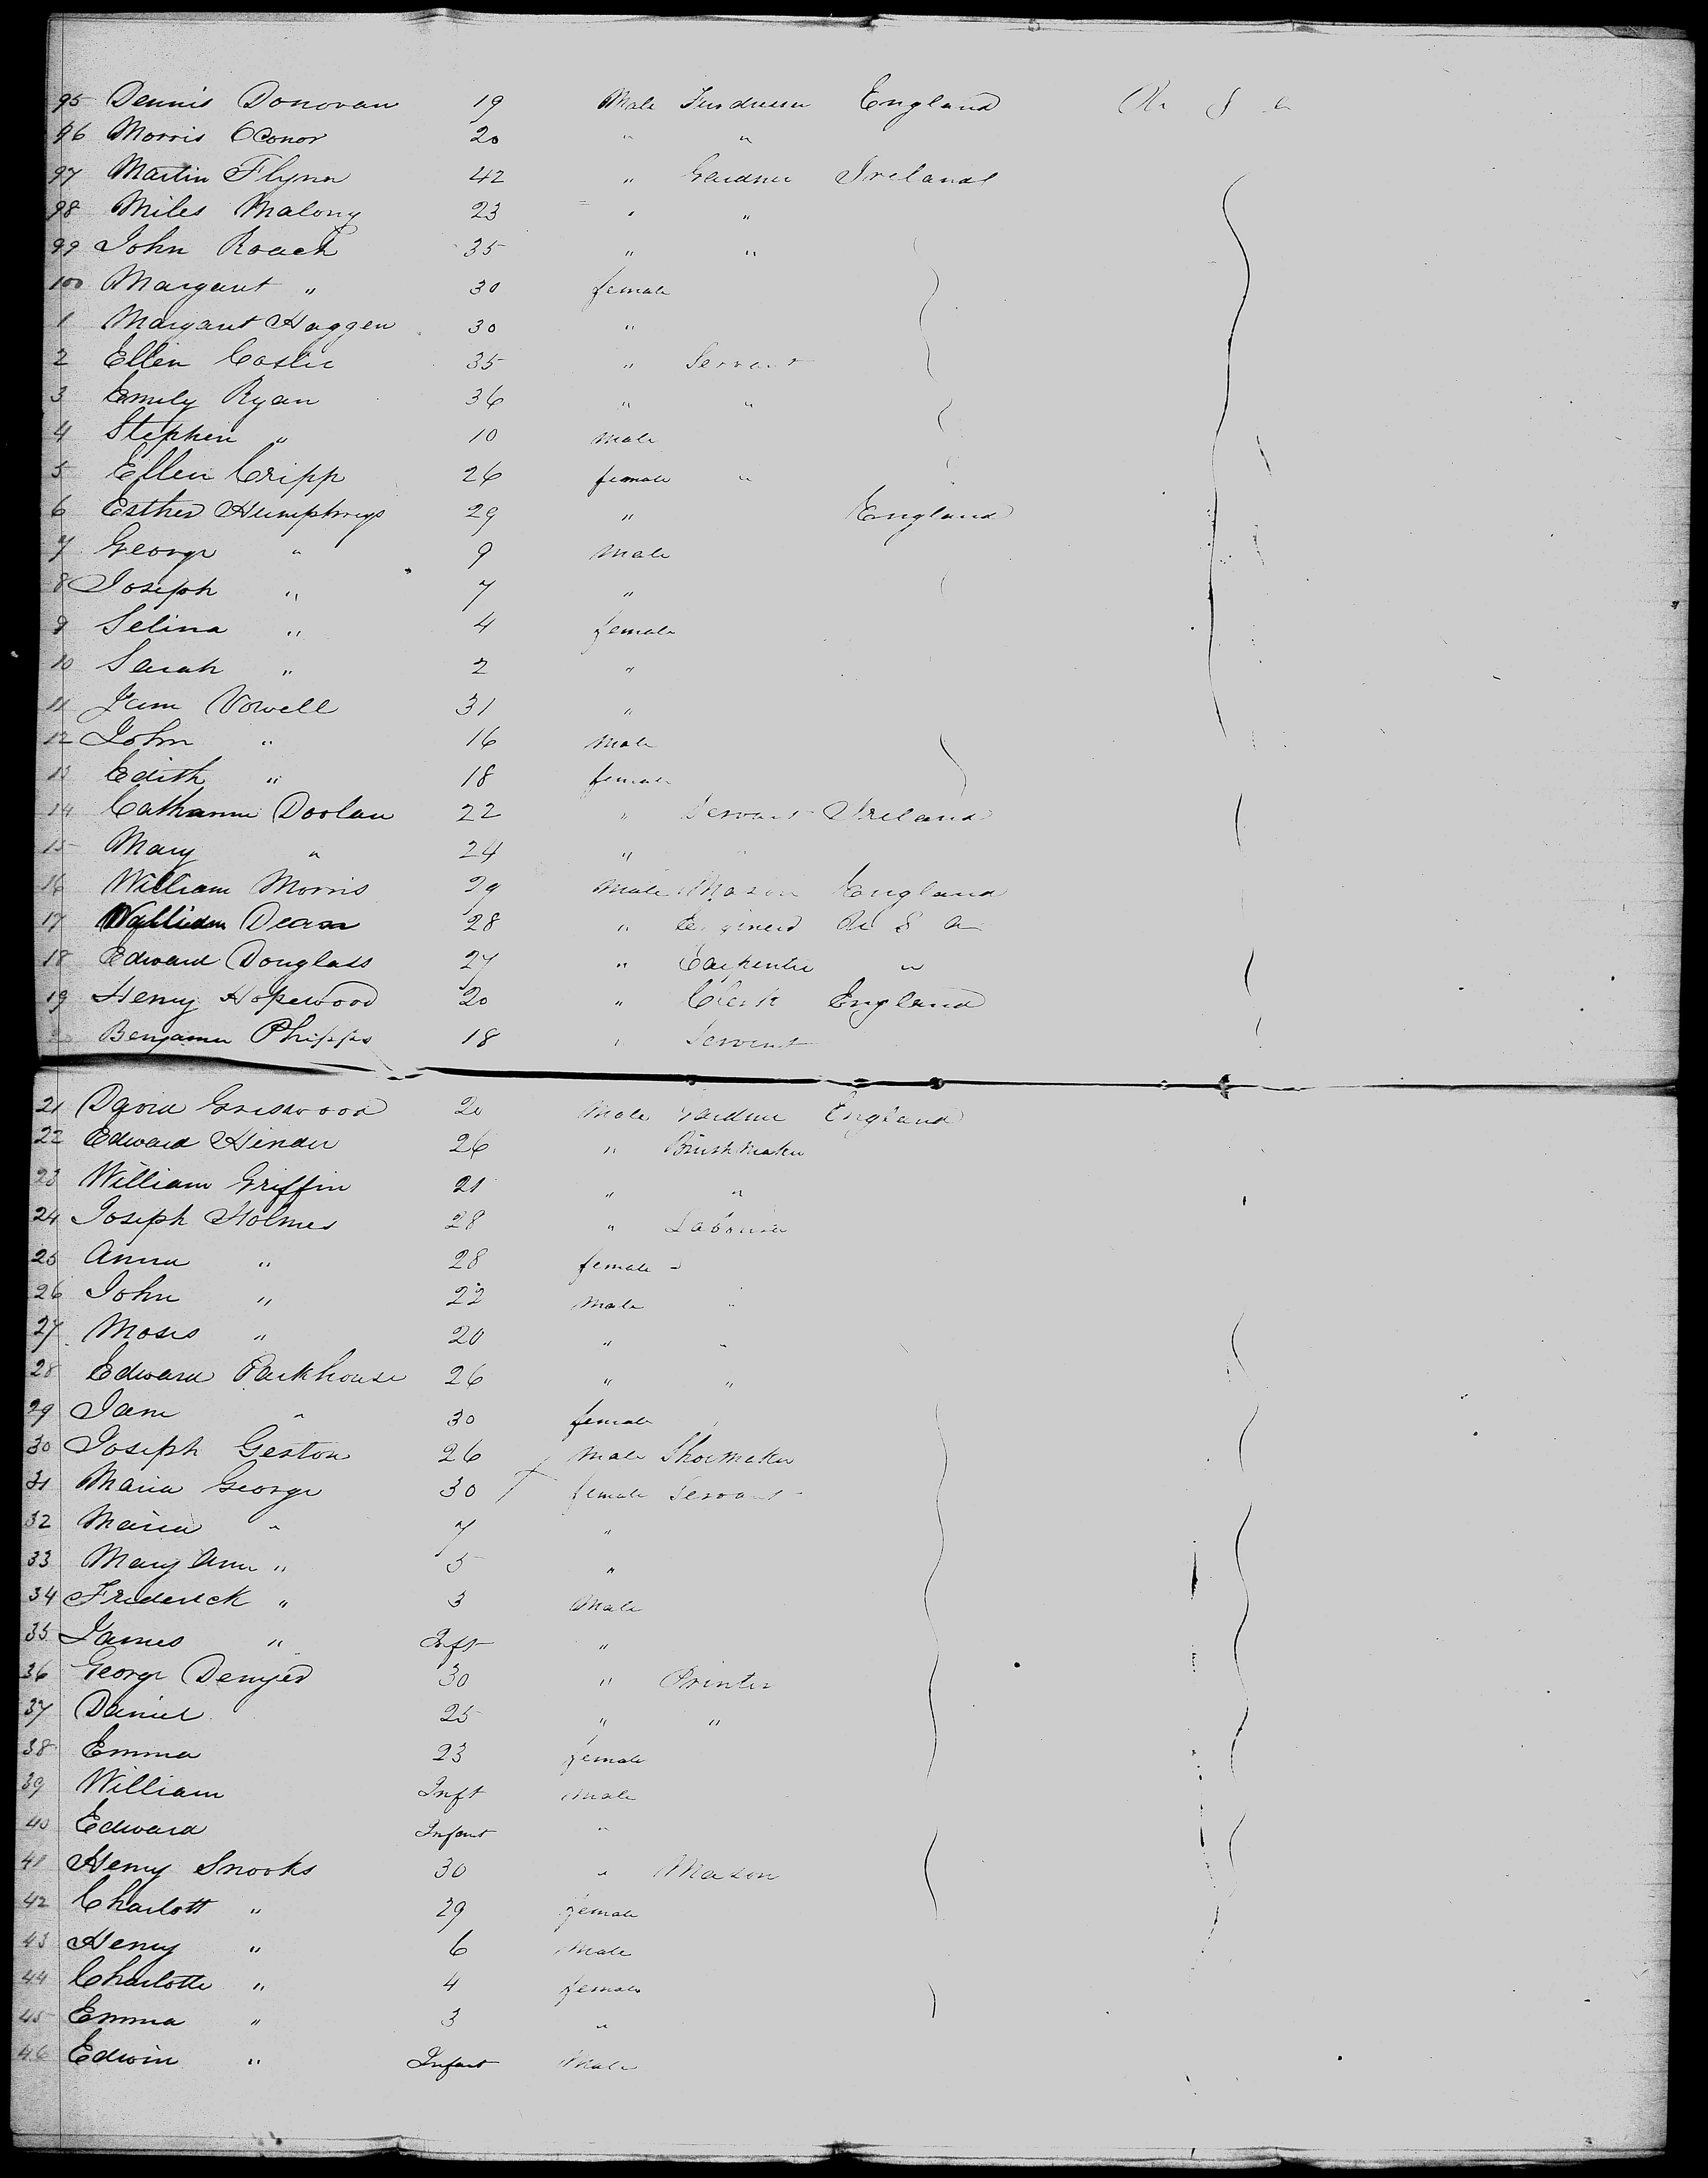 95 Dennis Donovan 19 Male England U S a
96 Morris OConor 20 " "
97 Martin Flynn 42 " Gardner Ireland
98 Miles Malony 23 " "
99 John Roach 35 " "
100 Margaret " 30 female
1 Margaret Haggen 30 "
2 Ellen Costic 35 " Servant
3 Emily Ryan 36 " "
4 Stephen " 10 Male
5 Ellen Cripp 26 female "
6 Esther Humphreys 29 " England
7 George " 9 Male
8 Joseph " 7 "
9 Selina " 4 female
10 Sarah " 2 "
11 Jane Vowell 31 "
12 John " 16 Male
13 Edith " 18 female
14 Catharine Doolan 22 " Servant Ireland
15 Mary " 24 "
16 William Morris 29 Male Mason England
17 William Dean 28 " Engineer U S a
18 Edward Douglass 27 " Carpenter "
19 Henry Hopewood 20 " Clerk England
20 Benjamin Phipps 18 " Servant
21 David Griswood 20 Male Gardner England
22 Edward Hinder 26 " Brushmaker
23 William Griffin 21 " "
24 Joseph Holmes 28 " Labourer
25 Anna " 28 female
26 John " 22 Male "
27 Moses " 20 " "
28 Edward Parkhouse 26 " "
29 Jane " 30 female
30 Joseph Geston 26 Male Shoemaker
31 Maria George 30 female Servant
32 Maria " 7 "
33 Mary Ann " 5 "
34 Frederick " 3 Male
35 James " Inft "
36 George Denyed 30 " Printer
37 Daniel 25 " "
38 Emma 23 female
39 William Inft Male
40 Edward Infant "
41 Henry Snooks 30 " Mason
42 Charlott " 29 female
43 Henry " 6 Male
44 Charlotte " 4 female
45 Emma " 3 "
46 Edwin " Infant Male